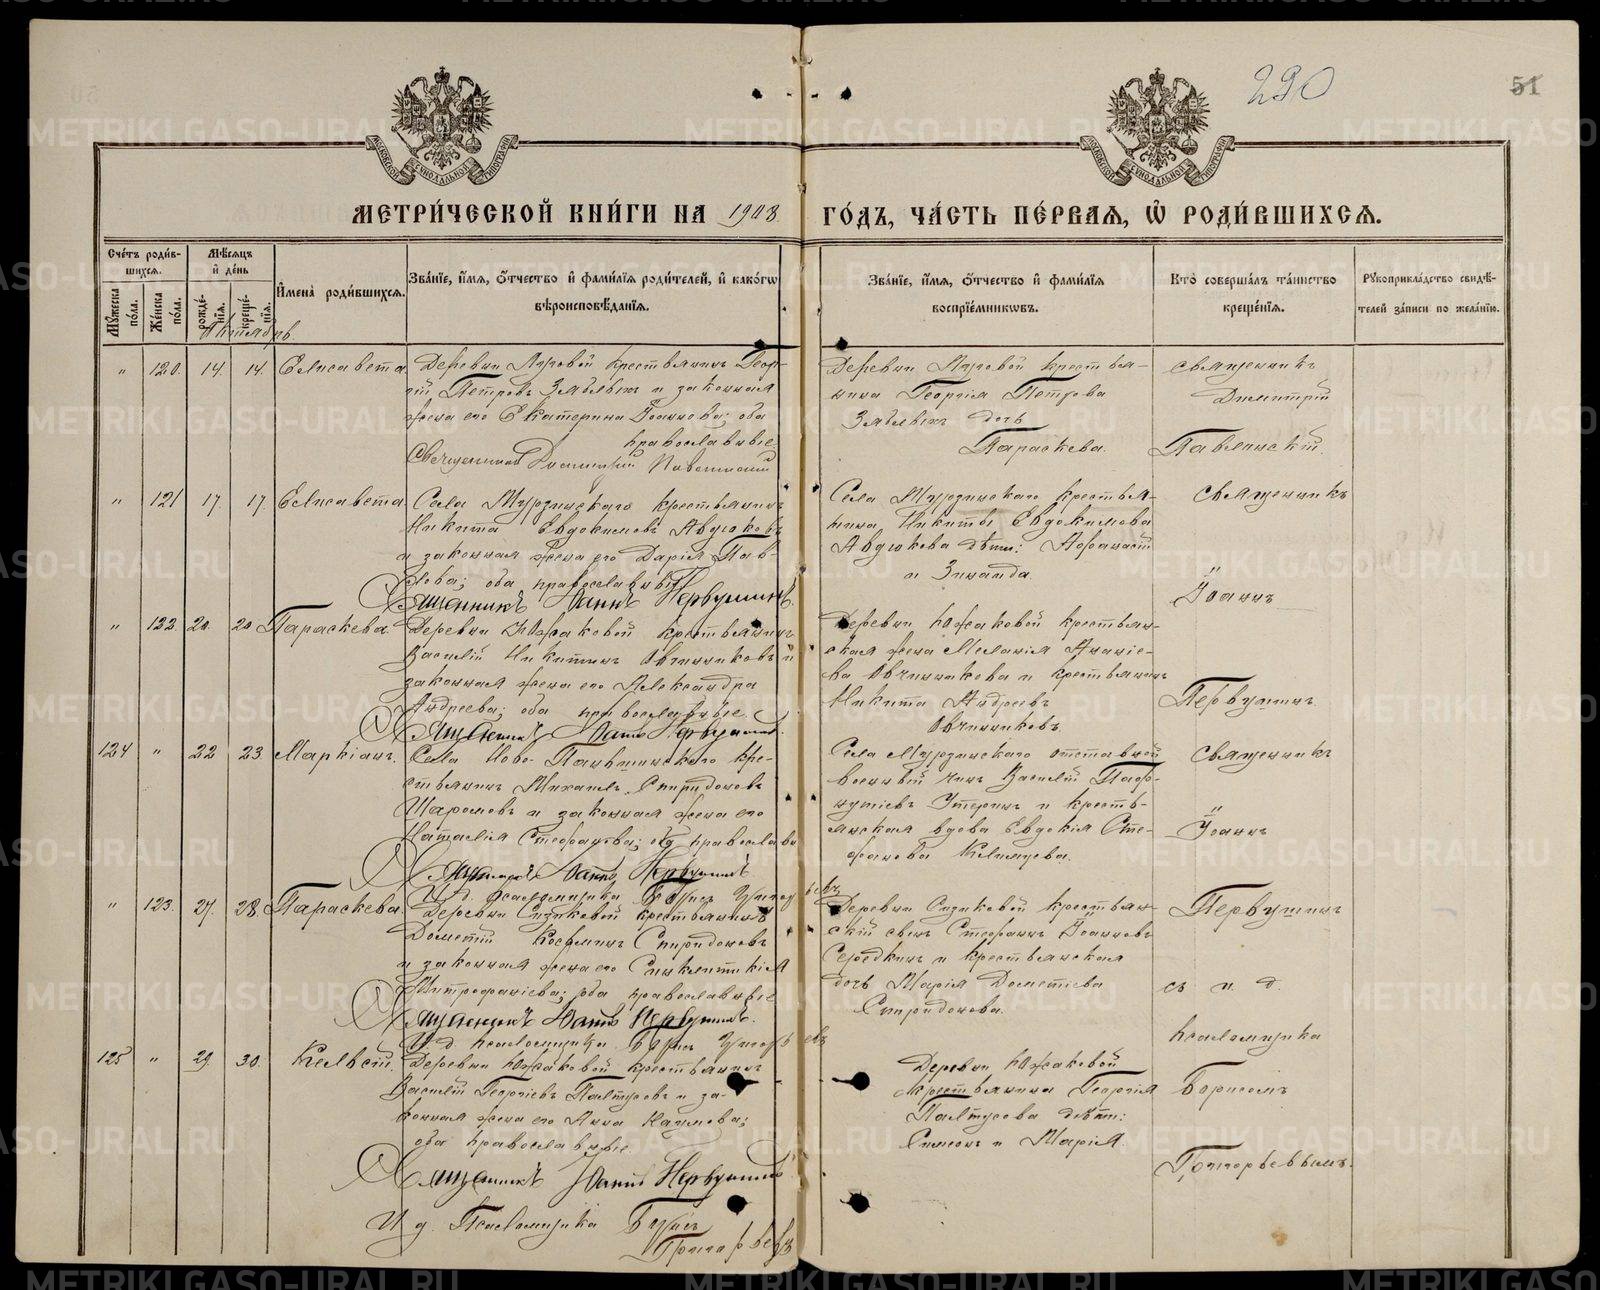 290
51
МЕТРИ́ЧЕСКОЙ КНИ́ГИ НА 1908 ГО́ДЪ, ЧА́СТЬ ПЕ́РВАЯ, Ѡ҆ РОДИ́ВШИХСЯ.
Сче́тъ роди́вшихся.
Мꙋ́жеска по́ла.
Же́нска по́ла.
Мѣ́сяцъ и҆ де́нь
рожде́нїя.
креще́нїя.
И҆мена̀ роди́вшихся.
Зва́нїе, и҆́мя, ѻ҆́тчество и҆ фами́лїя роди́телей, и҆ како́гѡ
вѣроисповѣ́данїя.
Зва́нїе, и҆́мя, ѻ҆́тчество и҆ фами́лїя
воспрїе́мникѡвъ.
Кто̀ соверша́лъ та́инство
креще́нїя.
Рꙋкоприкла́дство свидѣ́-
телей за́писи по жела́нїю.
Октябрь.
" 120. 14. 14. Елисавета
крестьянинъ Геор-
гій Петровъ и законная
жена его Екатерина Іоаннова; оба
православные
Священникъ Димитрій
крестья-
нина Георгія Петрова
дочь
Параскева.
священникъ
Димитрій
" 121 17. 17. Елисавета
Села Мурзинскаго крестьянинъ
Никита Евдокимовъ Авдюковъ
и законная жена его Дарія Пав-
лова; оба православные
Священникъ Іоаннъ Первушинъ.
Села Мурзинскаго крестья-
нина Никиты Евдокимова
Авдюкова дѣти: Аѳанасій
и Зинаида.
Священникъ
Іоаннъ
" 122. 20. 20 Параскева.
Деревни Южаковой крестьянинъ
Василій Никитинъ Овчинниковъ и
законная жена его Александра
Андреева; оба православные.
Священникъ Іоаннъ Первушинъ.
Деревни Южаковой крестьян-
ская жена Меланія Анані-
ва Овчинникова и крестьянинъ
Никита Андреевъ
Овчинниковъ.
Первушинъ.
124 " 22 23 Маркіанъ.
Села Ново-Паньшинскаго кре-
стьянинъ Михаилъ Спиридоновъ
и законная жена его
Наталія Стефанова; оба православные
Священникъ Іоаннъ Первушинъ
И. д. псаломщика Борисъ Григорьевъ
Села Мурзинскаго отставной
Василій Паф-
нутіевъ и кресть-
янская вдова Евдокія Сте-
фанова
Священникъ
Іоаннъ
" 123. 27. 28 Параскева.
Деревни Сизиковой крестьянинъ
Дометій Косьминъ Спиридоновъ
и законная жена его Синклитикія
Митрофаніева; оба православные
Священникъ Іоаннъ Первушинъ.
И. д. псаломщика Борисъ Григорьевъ
Деревни Сизиковой крестьян-
скій сынъ Стефанъ Іоанновъ
Середкинъ и крестьянская
дочь Марія Дометіева
Спиридонова.
Первушинъ
съ и. д.
псаломщика
125 " 29. 30.
Деревни Южаковой крестьянинъ
Василій Георгіевъ Палтусовъ и за-
конная жена его Анна Наумова;
оба православные.
Священникъ Іоаннъ Первушинъ
И. д. Псаломщика Борисъ
Григорьевъ
Деревни Южаковой
крестьянина Георгія
Палтусова дѣти:
Симеонъ и Марія.
Борисомъ
Григорьевымъ.
METRIKI.GASO-URAL.RU